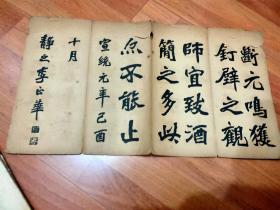 斷元鳴獲
釘壁之觀
師宜致酒
簡之多此
念不能止
宣統元年己酉
十月
静之李正華